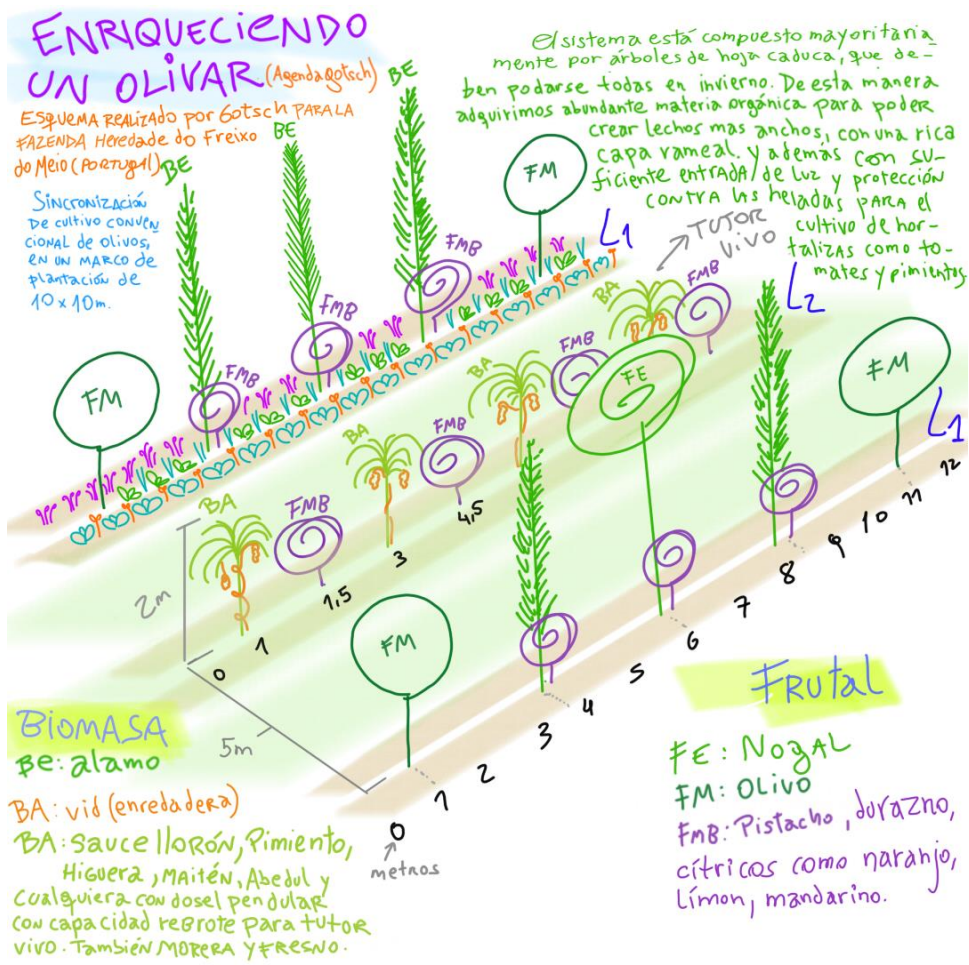 ENRIQUECIENDO
UN OLIVAR (Agendagotsch)
ESQUEMA REALIZADO por Gotsch PARA LA
FAZENDA Heredade do Freixo
do Meio (PORTUgAl)
SINCRONIZACIÓN
De cultivo CONVEN
CIONAL de Olivos,
EN UN MARCO DE
plantación de
10 x 10m.
El sistema está compuesto mayoritaria_
mente por árboles de hoja caduca, que de-
ben podarse todas en invierno. De esta manera
adquirimos abundante materia orgánica para poder
crear lechos mas anchos, con una rica
capa rameal. y además con su-
ficiente entrada de luz y protección
contra las heladas PARA el
cultivo de hor-
talizas como to-
mates y pimientos
BE
BE
BE
FM
L1
TUTOR
VIVO
FMB
FMB
FMB
FM
BA
FMB
L2
BA
FMB
FE
FM
L1
BA
FMB
BA
FMB
2m
0
1
1,5
3
4,5
FM
5m
0
1
2
3
4
5
6
7
8
9
10
11
12
metros
BIOMASA
Be: alamo
BA: vid (enredadera)
BA: sauce llORÓN, Pimiento,
HIGUERA, MAITÉN, Abedul y
Cualquiera con dosel pendular
con capacidad rebrote para tutor
vivo. También MORERA Y FRESNO.
FRUTAL
FE: NOgAL
FM: OLIVO
FMB: Pistacho, durazno,
cítricos como naranjo,
Límon, mandarino.